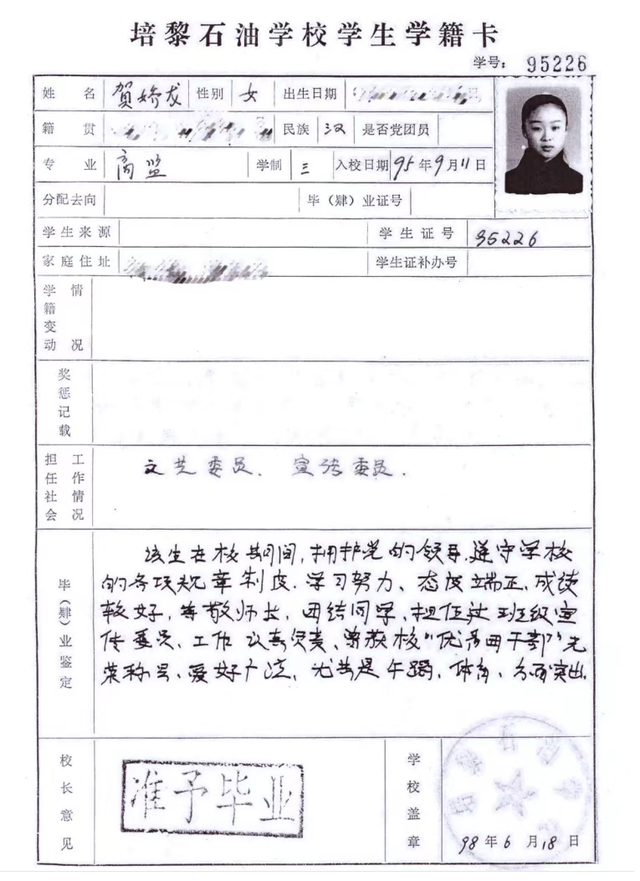 培黎石油学校学生学籍卡
学号: 95226
姓名 贺娇龙 性别 女 出生日期
籍贯 民族 汉 是否党团员
专业 商监 学制 三 入校日期 95年9月11日
分配去向 毕(肄)业证号
学生来源 学生证号 95226
家庭住址 学生证补办号
学籍变动情况
奖惩记载
担任社会工作情况 文艺委员、宣传委员.
毕(肄)业鉴定
该生在校期间,拥护党的领导,遵守学校
的各项规章制度.学习努力、态度端正,成绩
较好,尊敬师长,团结同学,担任过班级宣
传委员,工作认真负责,曾获校“优秀团干部”光
荣称号,爱好广泛,尤其是午蹈,体育,方面突出.
校长意见 准予毕业 学校盖章
98年6月18日